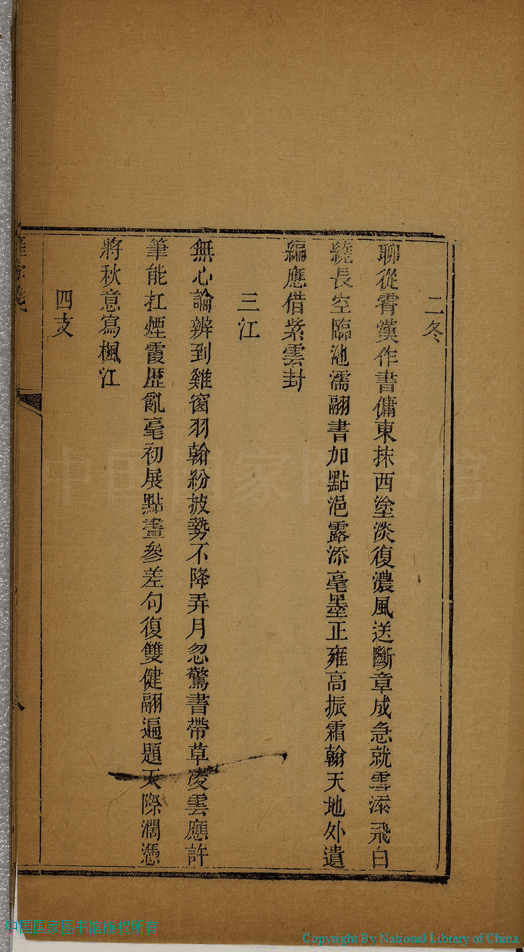 二冬
聊從霄漢作書傭東抹西塗淡復濃風送斷章成急就雲添飛白
繞長空臨池濡翮書加點浥露添毫墨正雍高振霜翰天地外遺
編應借紫雲封
三江
無心論辨到雞窗羽翰紛披勢不降弄月忽驚書帶草凌雲應許
筆能扛煙霞歷亂毫初展點畫參差句復雙健翮遍題天際濶憑
將秋意寫楓江
四支
中国国家图书馆版权所有
Copyright By National Library of China